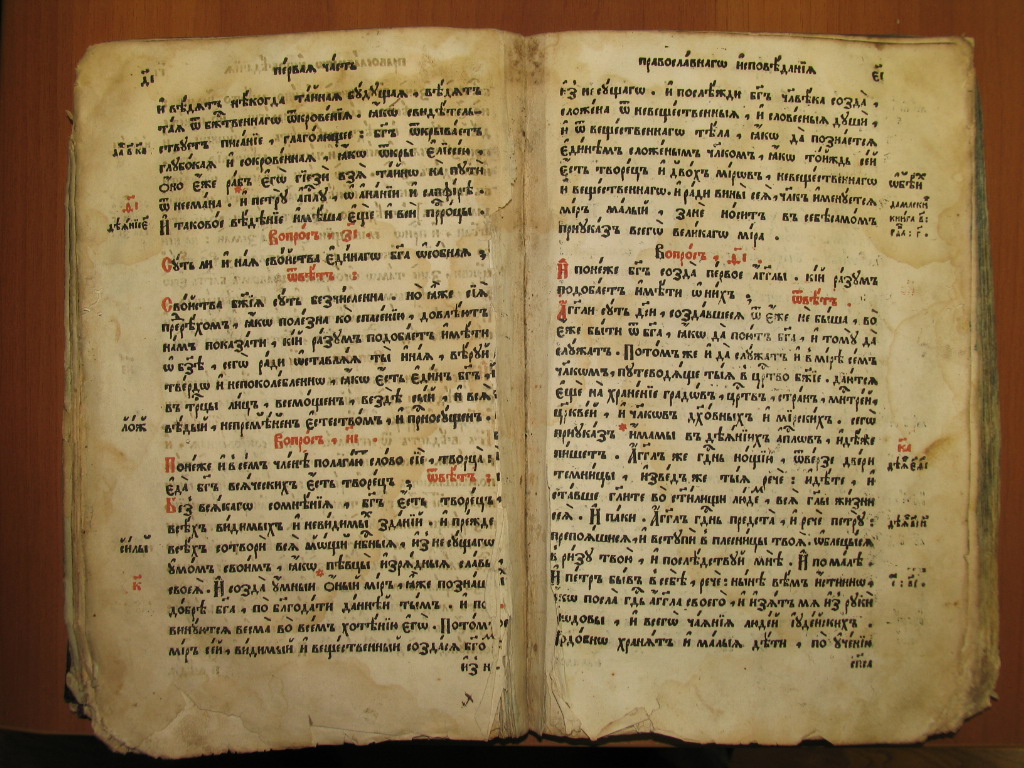 д҃і
пе́рвая ча́сть
и҆ вѣ́дѧтъ нѣ́когда та́йнаѧ бꙋ́дꙋщаѧ , вѣ́дѧтъ
та́ѧ ѿ бж҃твеннагѡ ѿкрове́нїѧ . ꙗ҆́кѡ свидѣ́тель-
ствꙋетъ писа́нїе , глаго́лющее : бг҃ъ ѿкрыва́етъ
глꙋбо́каѧ и҆ сокрове́ннаѧ , ꙗ҆́кѡ ѿкры̀ є҆лїссе́и ,
ѻ҆́но є҆́же ра́бъ є҆гѡ̀ гїезі́и взѧ̀ та́йнѡ на пꙋтѝ
ѿ неема́на . и҆ петрꙋ̀ а҆п҃лꙋ , ѿ а҆на́нїи и҆ сапфі́рѣ .
И҆ таково́е вѣ́дѣнїе и҆мѣ́ша є҆щѐ и҆ всѝ прⷪ҇ро́цы .
Вопро́съ . з҃і .
Сꙋ́ть ли и҆ и҆́наѧ сво́йства є҆ди́нагѡ бг҃а ѡ҆со́бнаѧ ;
ѿвѣ́тъ :
Сво́йства бж҃їѧ сꙋ́ть безчи́сленна . но ꙗ҆̀же сїѧ̀
пререко́хомъ , ꙗ҆́кѡ поле́зна ко спасе́нїю , довлѣ́етъ
на́мъ показа́ти , кі́й ра́зꙋмъ подоба́етъ и҆мѣ́ти
ѡ҆ бз҃ѣ , сегѡ̀ ра́ди ѡ҆ставлѧ́ѧ ты̀ и҆на́ѧ , вѣ́рꙋй
тве́рдѡ и҆ непоколе́бленнѡ , ꙗ҆́кѡ є҆́сть є҆ди́нъ бг҃ъ ,
въ трⷪ҇цы ли́цъ , всемо́щенъ , вездѣ̀ сы́й , и҆ всѧ̀
вѣ́дый , непремѣ́ненъ є҆стество́мъ , и҆ присносꙋ́щенъ .
Вопро́съ , и҃і .
Поне́же и҆ въ се́мъ чле́нѣ полага́ю сло́во сїѐ , творца̀ :
є҆да̀ бг҃ъ всѧ́ческихъ є҆́сть творе́цъ ; ѿвѣ́тъ :
Без̾ всѧ́кагѡ сомнѣ́нїѧ , бг҃ъ є҆́сть творе́цъ ,
всѣ́хъ ви́димыхъ и҆ неви́димыⷯ зда́нїй . и҆ пре́жде
всѣ́хъ сотворѝ всѧ̀ нб҃ныѧ , и҆з̾ не сꙋ́щагѡ
ᲂу҆мо́мъ свои́мъ , ꙗ҆́кѡ пѣвцы̀ и҆зрѧ́дныѧ сла́вы
своеѧ̀ . И҆ созда̀ ᲂу҆́мный ѻ҆́ный мі́ръ , ꙗ҆́же позна́ша
до́брѣ бг҃а , по бл҃года́ти да́ннѣй ты́мъ . и҆
винꙋ́ютсѧ весма̀ во все́мъ хотѣ́нїю є҆гѡ̀ . Пото́мъ
мі́ръ се́й , ви́димый и҆ веще́ственный созда́сѧ бг҃оⷨ
и҆з̾ н
правосла́внагѡ и҆сповѣ́данїѧ
є҃і
и҆з̾ не сꙋ́щагѡ . и҆ послѣжди́ бг҃ъ чл҃вѣ́ка созда̀ ,
сло́жена ѿ невеще́ственныѧ , и҆ слове́сныѧ дꙋшѝ ,
и҆ ѿ веще́ственнагѡ тѣ́ла , ꙗ҆́кѡ да позна́етсѧ
є҆ди́нѣмъ сло́женымъ чл҃комъ , ꙗ҆́кѡ то́йждь се́й
є҆́сть творе́цъ и҆ двои́хъ мі́рѡвъ , невеще́ственнагѡ
и҆ веще́ственнагѡ . и҆ ра́ди вины̀ сеѧ̀ , чл҃къ и҆менꙋ́етсѧ
мі́ръ ма́лый , занѐ но́ситъ въ себѣ̀ само́мъ
прика́зъ всегѡ̀ вели́кагѡ мі́ра .
Вопро́съ , ѳ҃і .
И҆ поне́же бг҃ъ созда̀ пе́рвое а҆́гг҃лы . кі́й ра́зꙋмъ
подоба́етъ и҆мѣ́ти ѡ҆ ни́хъ ; ѿвѣ́тъ .
А҆́гг҃ли сꙋ́ть дꙋ́си , созда́вшесѧ ѿ є҆́же не бы́ша , во
є҆́же бы́ти ѿ бг҃а , ꙗ҆́кѡ да пою́тъ бг҃а , и҆ томꙋ̀ да
слꙋ́жатъ . Пото́мъ же и҆ да слꙋ́жатъ и҆ въ мі́рѣ се́мъ
чл҃комъ , пꙋтеводѧ́ще ты́ѧ в̾ црⷭ҇тво бж҃їе , даю́тсѧ
є҆щѐ на хране́нїе градѡ́въ , црⷭ҇твъ , стра́нъ , мн҃тре́й ,
цр҃кве́й , и҆ чл҃кѡвъ дх҃о́вныхъ и҆ мїрски́хъ . сегѡ̀
прика́зъ и҆́мамы въ дѣѧ́нїихъ а҆пⷭ҇лвъ , и҆дѣ́же
пи́шетъ . А҆́гг҃лъ же гдⷭ҇нь но́щїю , ѿве́рзе две́ри
темни́цы , и҆зве́дъ же ты́ѧ речѐ : и҆ди́те , и҆
ста́вше гл҃ите во ст҃и́лищи лю́деⷨ , всѧ̀ гл҃ы жи́зни
сеѧ̀ . И҆ па́ки . А҆́гг҃лъ гдⷭ҇нь предста̀ , и҆ речѐ петрꙋ̀ :
препоѧ́шисѧ , и҆ встꙋпѝ в̾ плесни́цы твоѧ̀ . ѡ҆блецы́сѧ
в̾ ри́зꙋ твою̀ , и҆ послѣ́дствꙋй мнѣ̀ . И҆ по ма́лѣ .
И҆ пе́тръ бы́въ в̾ себѣ̀ , речѐ : ны́нѣ вѣ́мъ и҆́стиннѡ ,
ꙗ҆́кѡ посла̀ гдⷭ҇ь а҆́гг҃ла своего̀ , и҆ и҆з̾ѧ́тъ мѧ и҆з̾ рꙋкѝ
и҆́рѡдовы , и҆ всегѡ̀ ча́ѧнїѧ люде́й і҆ꙋде́йскихъ .
подо́бнѡ хранѧ́тъ и҆ ма́лыѧ дѣ́ти , по ᲂу҆че́нїю
сп҃са